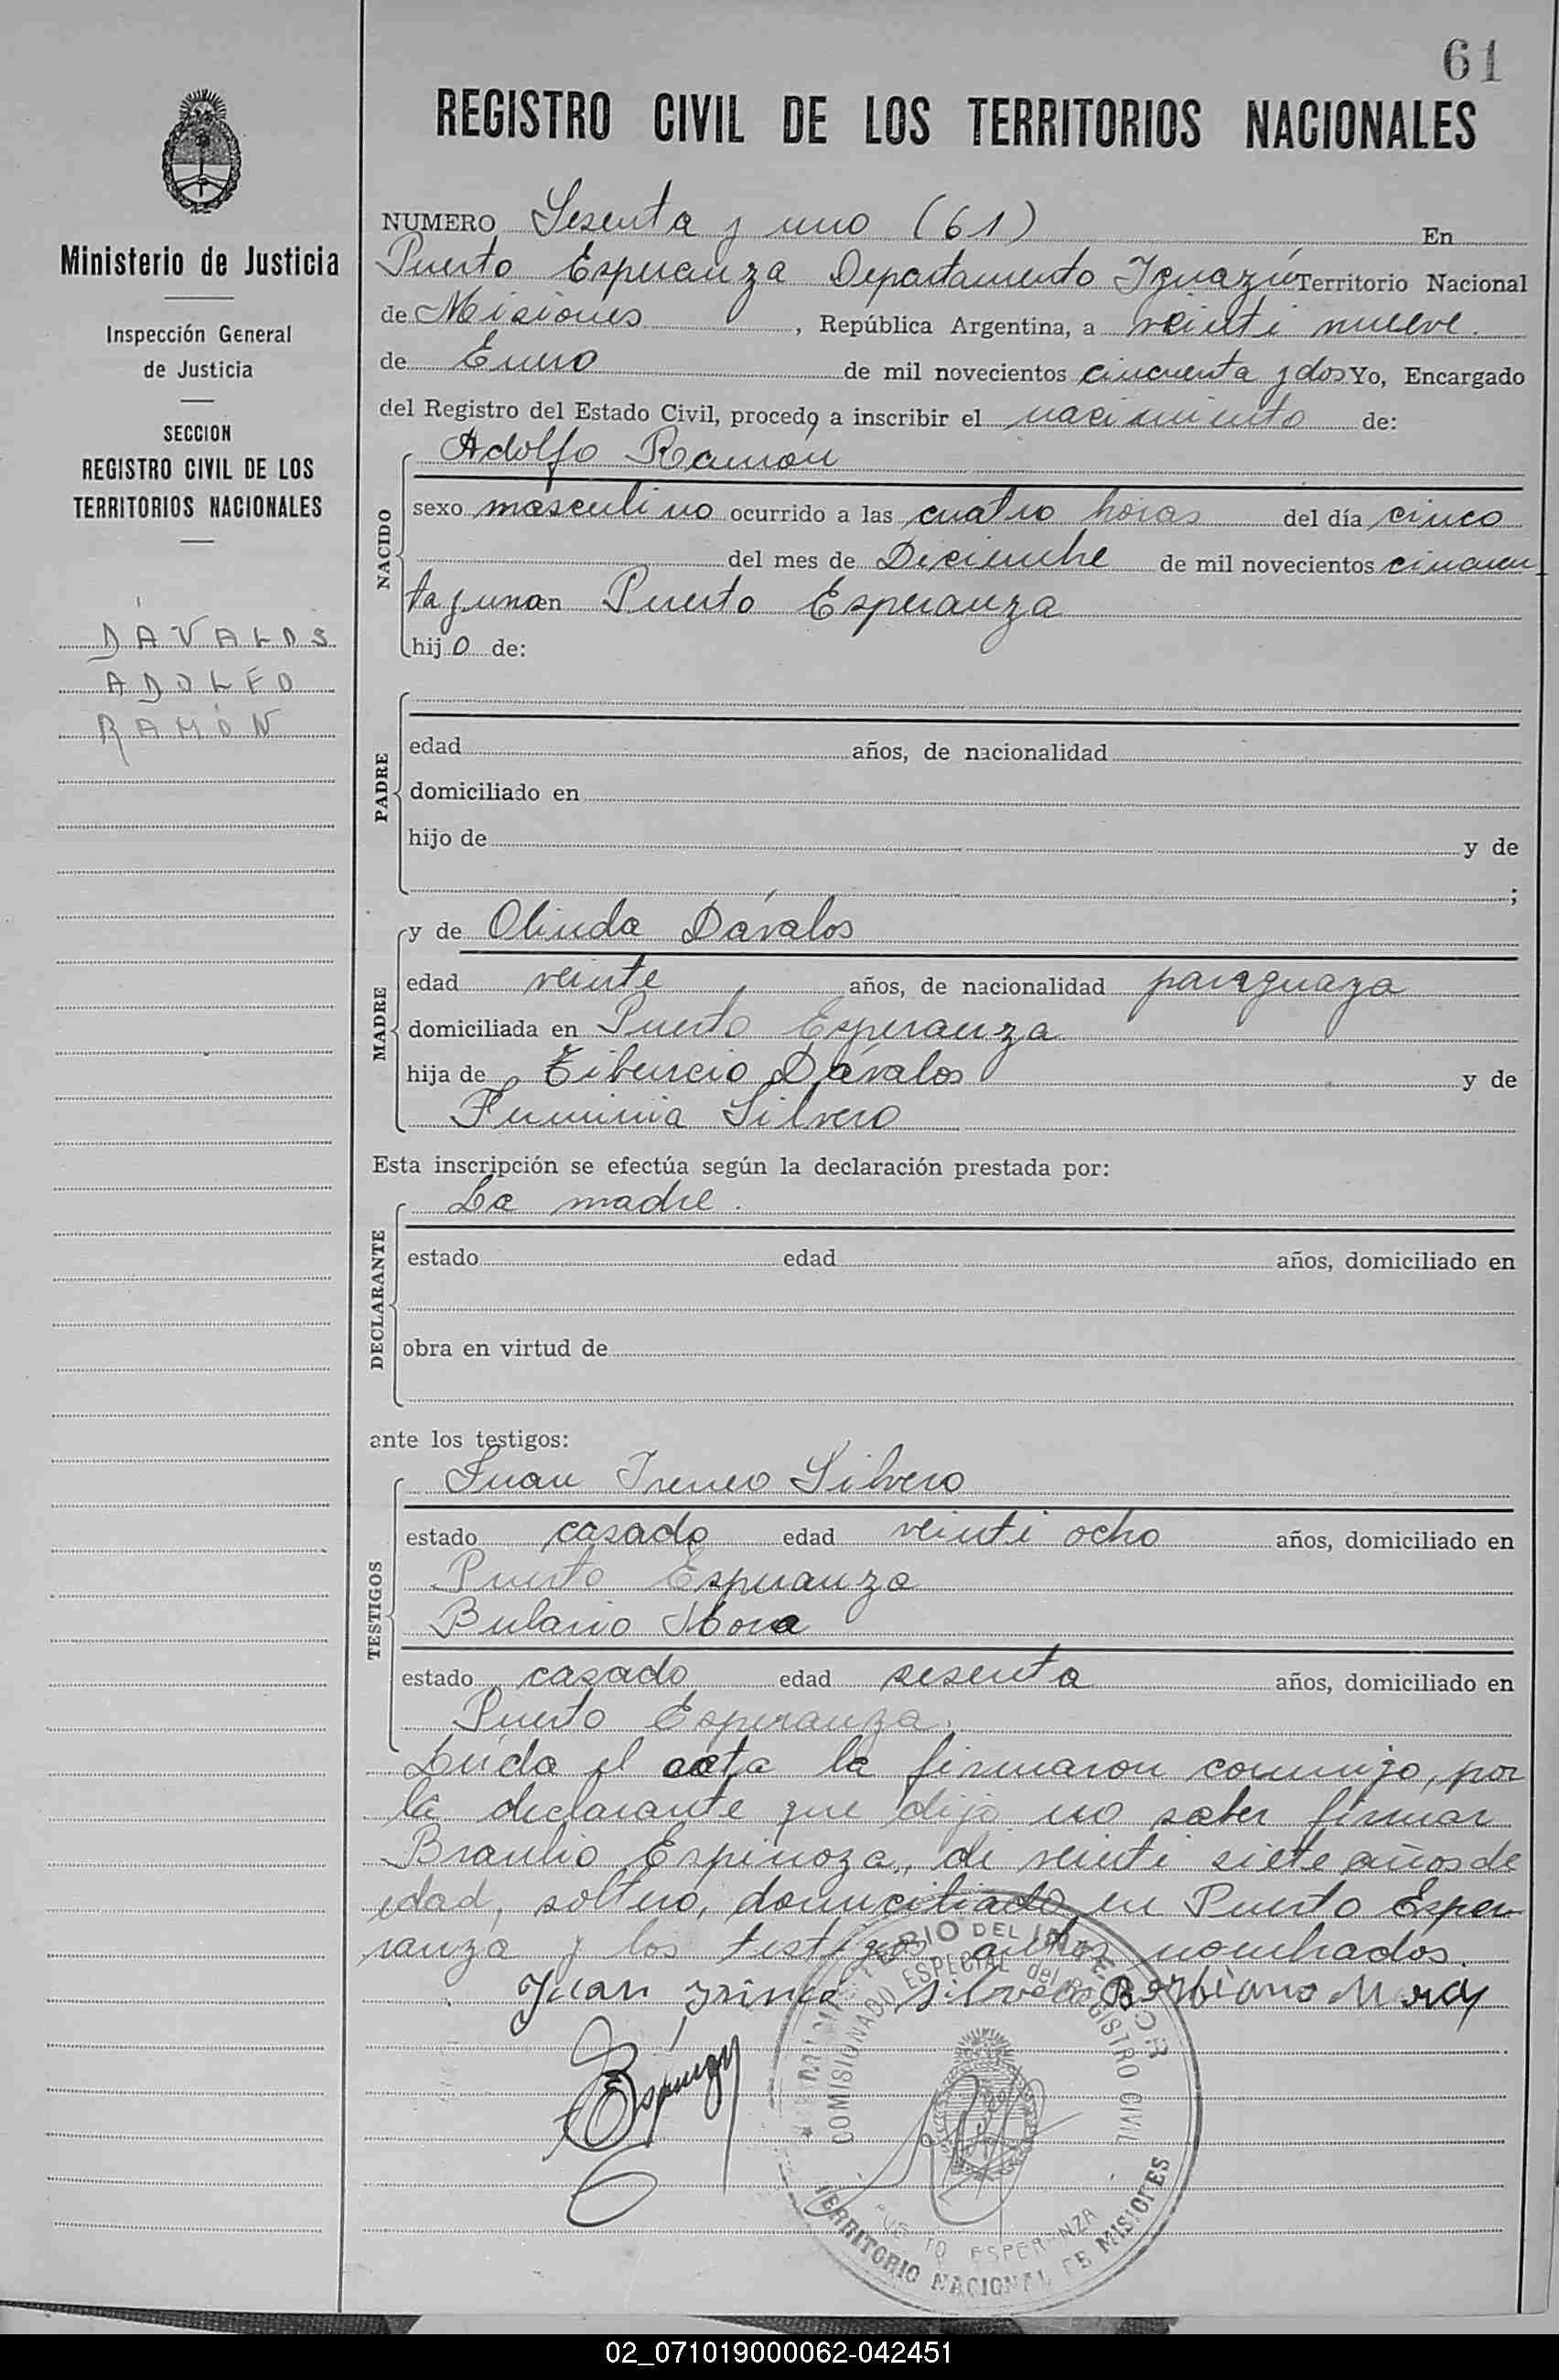 61
REGISTRO CIVIL DE LOS TERRITORIOS NACIONALES
Ministerio de Justicia
Inspección General
de Justicia
SECCION
REGISTRO CIVIL DE LOS
TERRITORIOS NACIONALES
DÁVALOS
ADOLFO
RAMÓN
NUMERO Sesenta y uno (61) En
Puerto Esperanza Departamento Iguazú Territorio Nacional
de Misiones, República Argentina, a veinti nueve.
de Enero de mil novecientos cincuenta y dos Yo, Encargado
del Registro del Estado Civil, procedo a inscribir el nacimiento de:
NACIDO
Adolfo Ramón
sexo masculino ocurrido a las cuatro horas del día cinco
del mes de Diciembre de mil novecientos cincuen
ta y uno en Puerto Esperanza
hijo de:
PADRE
edad años, de nacionalidad
domiciliado en
hijo de y de
;
MADRE
y de Olinda Dávalos
edad veinte años, de nacionalidad paraguaya
domiciliada en Puerto Esperanza
hija de Tiburcio Dávalos y de
Silvero
Esta inscripción se efectúa según la declaración prestada por:
DECLARANTE
La madre.
estado edad años, domiciliado en
obra en virtud de
ante los testigos:
TESTIGOS
Juan Ireneo Silvero
estado casado edad veinti ocho años, domiciliado en
Puerto Esperanza
Mora
estado casado edad sesenta años, domiciliado en
Puerto Esperanza.
Leída el acta la firmaron conmigo, por
la declarante que dijo no saber firmar
Braulio Espinoza, de veinti siete años de
edad, soltero, domiciliado en Puerto Espe
ranza y los testigos antes nombrados.
Juan
Espinoza
COMISIONADO ESPECIAL del REGISTRO CIVIL
PUERTO ESPERANZA
TERRITORIO NACIONAL DE MISIONES
02_071019000062-042451